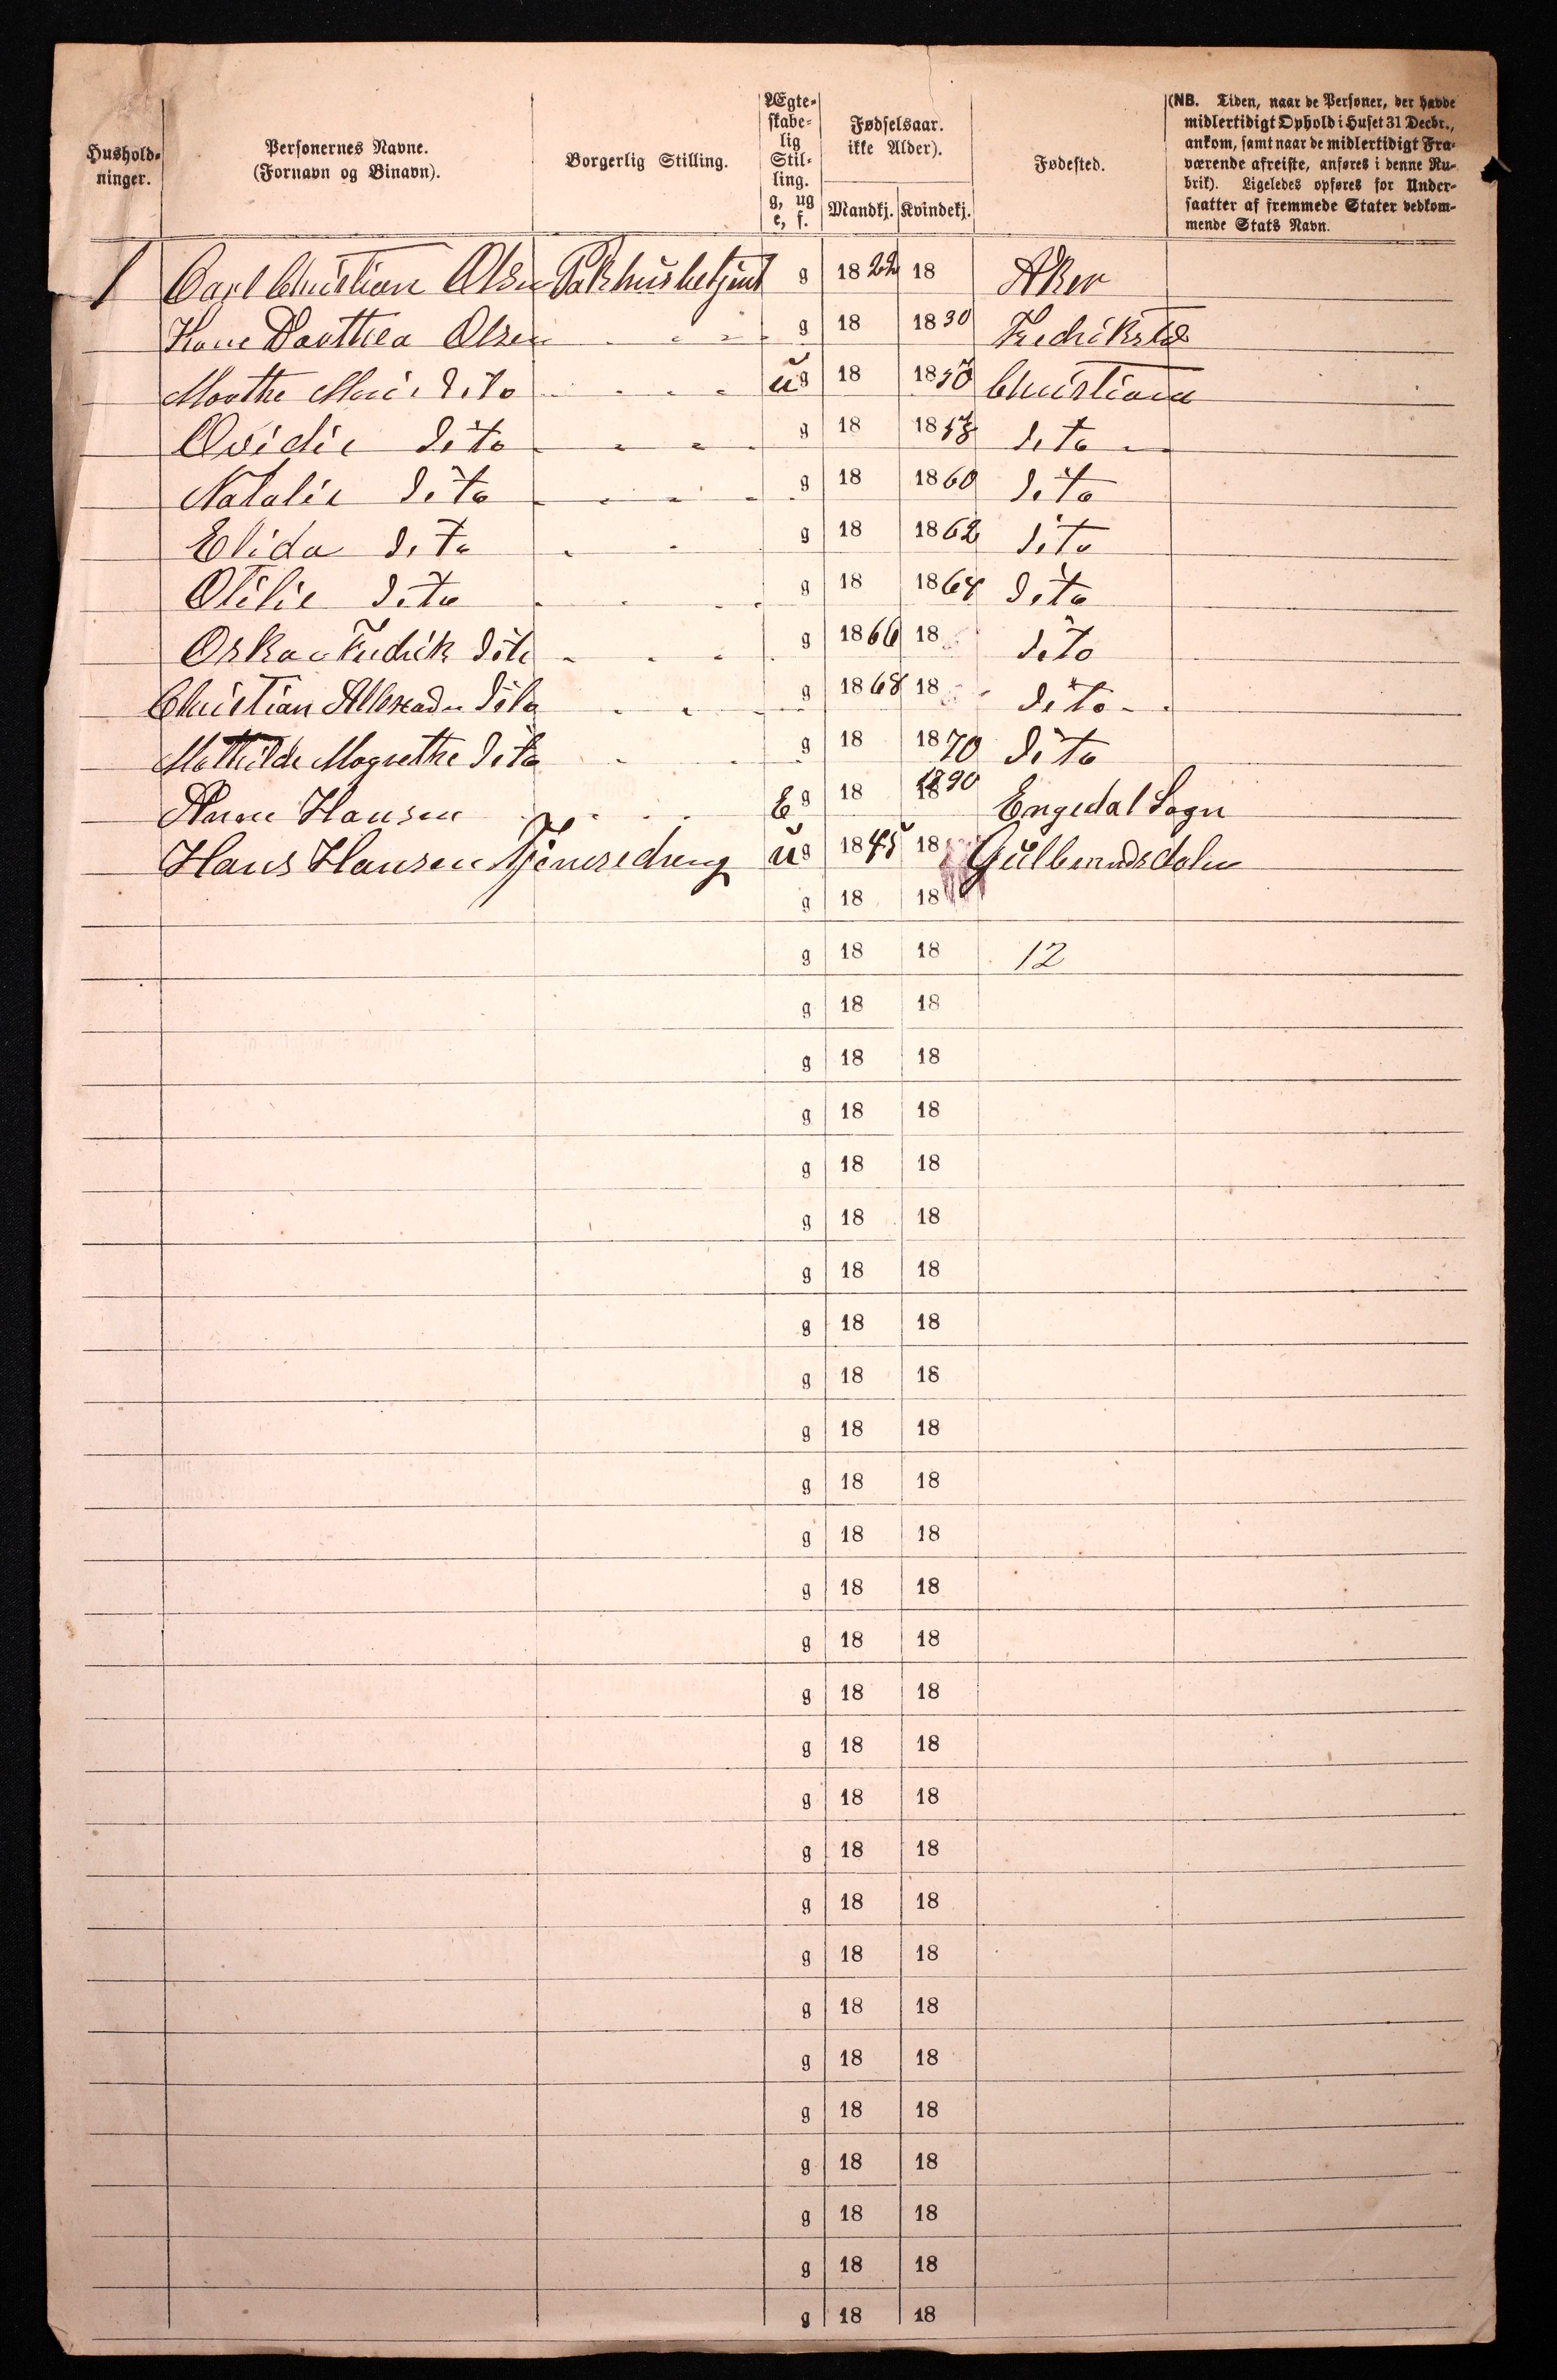 Hushold-
ninger.
Personernes Navne.
(Fornavn og Binavn).
Borgerlig Stilling.
Ægte-
skabe-
lig
Stil-
ling.
g, ug
e, f.
Fødselsaar.
ikke Alder).
Mandkj. Kvindekj.
Fødested.
(NB. Tiden, naar de Personer, der havde
midlertidigt Ophold i Huset 31 Decbr.,
ankom, samt naar de midlertidigt Fra-
værende afreiste, anføres i denne Ru-
brik). Ligeledes opføres for Under-
saatter af fremmede Stater vedkom-
mende Stats Navn.
1 Carl Christian Olsen Pakhusbetjent g 1822 18 Aker
Kone Dorthea Olsen g 18 1830 Fredrikstad
Marthe Marie dito ug 18 1850 Christiania
Ovidie dito g 18 dito
Natalie dito g 18 1860 dito
Elida dito g 18 1862 dito
Otilie dito g 18 1864 dito
Oskar Fredrik dito g 1866 18 dito
Christian Allexader dito g 1868 18 dito
Mathilde Magrethe dito g 18 1870 dito
Anne Hansen E g 18 1790 Engedal Sogn
Hans Hansen Tjenesedreng ug 1845 18 Gulbrandsdalen
g 18 18
g 18 18 12
g 18 18
g 18 18
g 18 18
g 18 18
g 18 18
g 18 18
g 18 18
g 18 18
g 18 18
g 18 18
g 18 18
g 18 18
g 18 18
g 18 18
g 18 18
g 18 18
g 18 18
g 18 18
g 18 18
g 18 18
g 18 18
g 18 18
g 18 18
g 18 18
g 18 18
g 18 18